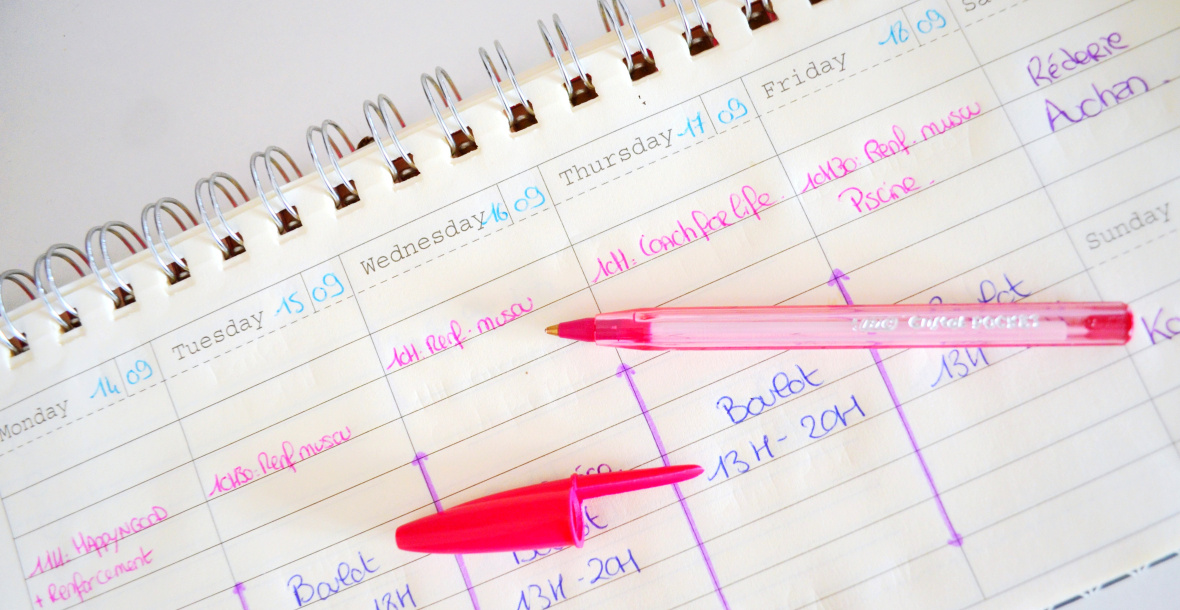 Monday 14 09
11H: HAPPYNGOOD
+ Renforcement
Tuesday 15 09
10H30: Renf muscu
Boulot
Wednesday 16 09
10H: Renf. muscu
13H - 20H
Thursday 17 09
10H: Coach for life
Boulot
13H - 20H
Friday 18 09
10H30: Renf. muscu
Piscine.
13H
Réderie
Auchan.
Sunday